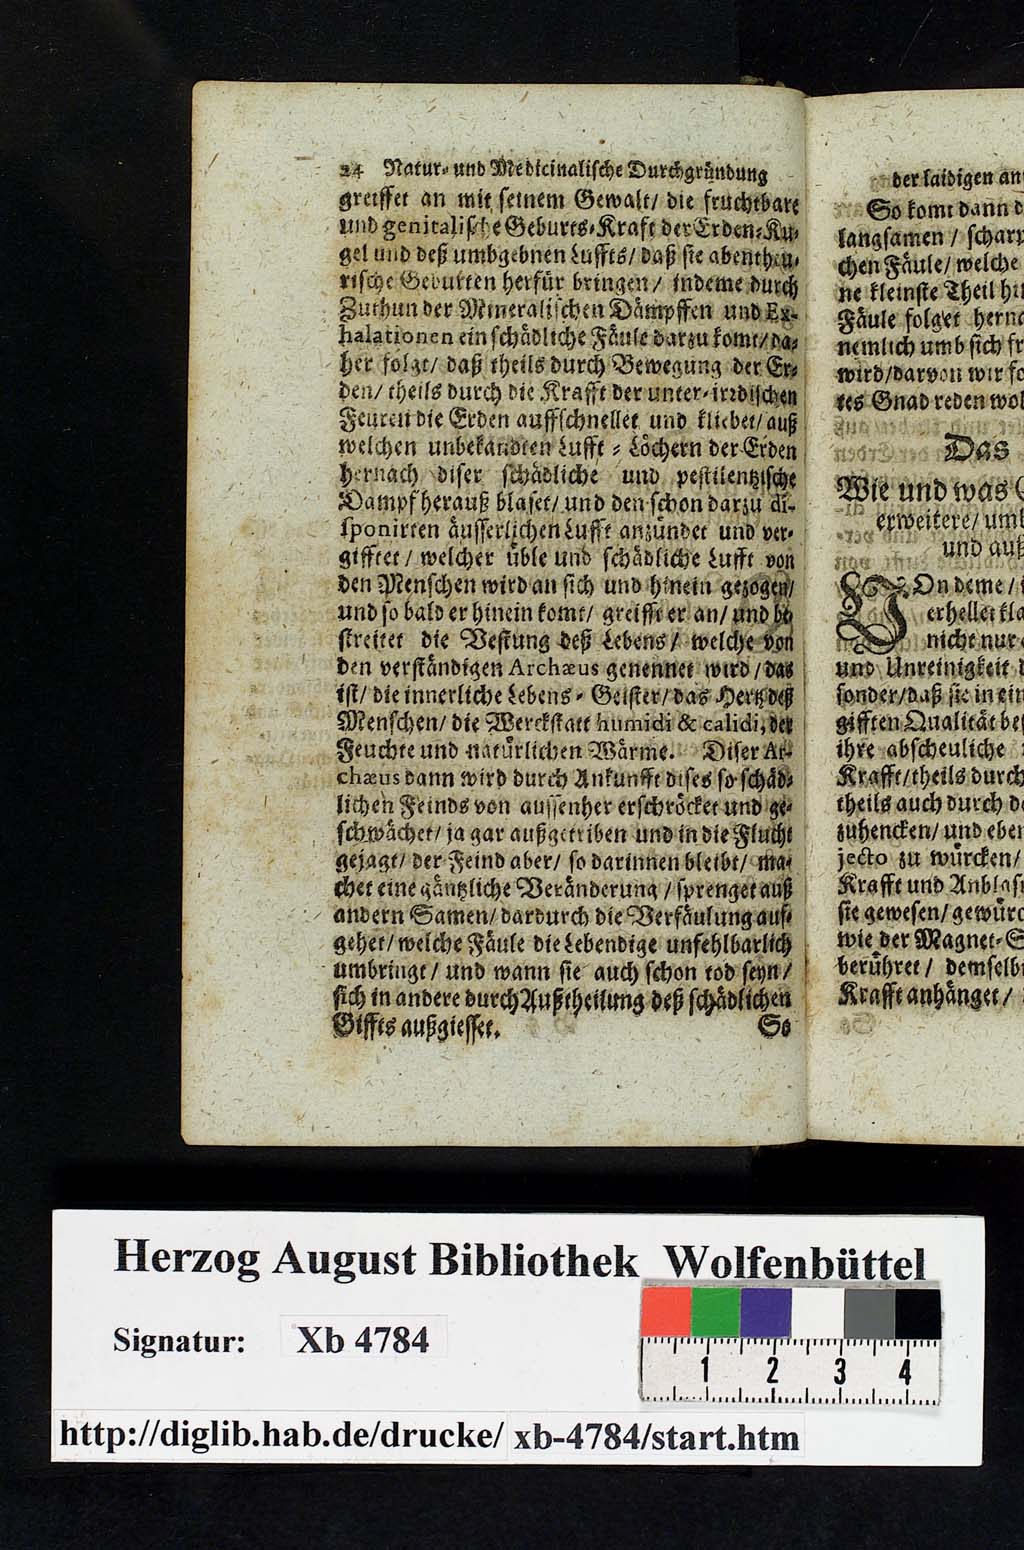 24 Natur- und Medicinalische Durchgründung
greiffet an mit seinem Gewalt/ die fruchtbare
und genitalische Geburts-Kraft der Erden-Ku-
gel und deß umbgebnen Luffts/ daß sie abentheu-
rische Geburten herfür bringen/ indeme durch
Zuthun der Mineralischen Dämpffen und Ex-
halationen ein schädliche Fäule darzu komt/ da-
her folgt/ daß theils durch Bewegung der Er-
den/ theils durch die Krafft der unter-irrdischen
Feuren die Erden auffschnellet und kliebet/ auß
welchen unbekandten Lufft-Löchern der Erden
hernach diser schädliche und pestilentzische
Dampf herauß blaset/ und den schon darzu di-
sponirten äusserlichen Lufft anzündet und ver-
gifftet/ welcher üble und schädliche Lufft von
den Menschen wird an sich und hinein gezogen/
und so bald er hinein komt/ greifft er an/ und be-
streitet die Vestung deß Lebens/ welche von
den verständigen Archæus genennet wird/ das
ist/ die innerliche Lebens-Geister/ das Hertz deß
Menschen/ die Werckstatt humidi & calidi, der
Feuchte und natürlichen Wärme. Diser Ar-
chæus dann wird durch Ankunfft dises so schäd-
lichen Feinds von aussenher erschröcket und ge-
schwächet/ ja gar außgetriben und in die Flucht
gejagt/ der Feind aber/ so darinnen bleibt/ ma-
chet eine gäntzliche Veränderung/ sprenget auß
andern Samen/ dardurch die Verfäulung auf-
gehet/ welche Fäule die Lebendige unfehlbarlich
umbringt/ und wann sie auch schon tod seyn/
sich in andere durch Außtheilung deß schädlichen
Giffts außgiesset.
So
der laidigen an
So komt dann d
langsamen/ scharp
chen Fäule/ welche
ne kleinste Theil hi
Fäule folget herna
nemlich umb sich fr
wird/ darvon wir fo
tes Gnad reden wol
Das
Wie und was
erweitere/ umb
und auß
VOn deme/
erhellet kla
nicht nur
und Unreinigkeit d
sonder/ daß sie in ein
gifften Qualität bes
ihre abscheuliche
Krafft/ theils durch
theils auch durch de
zuhencken/ und eben
jecto zu würcken/
Krafft und Anblas
sie gewesen/ gewürc
wie der Magnet-S
berühret/ demselb
Krafft anhänget/
Herzog August Bibliothek Wolfenbüttel
Signatur: Xb 4784
1 2 3 4
http://diglib.hab.de/drucke/ xb-4784/start.htm